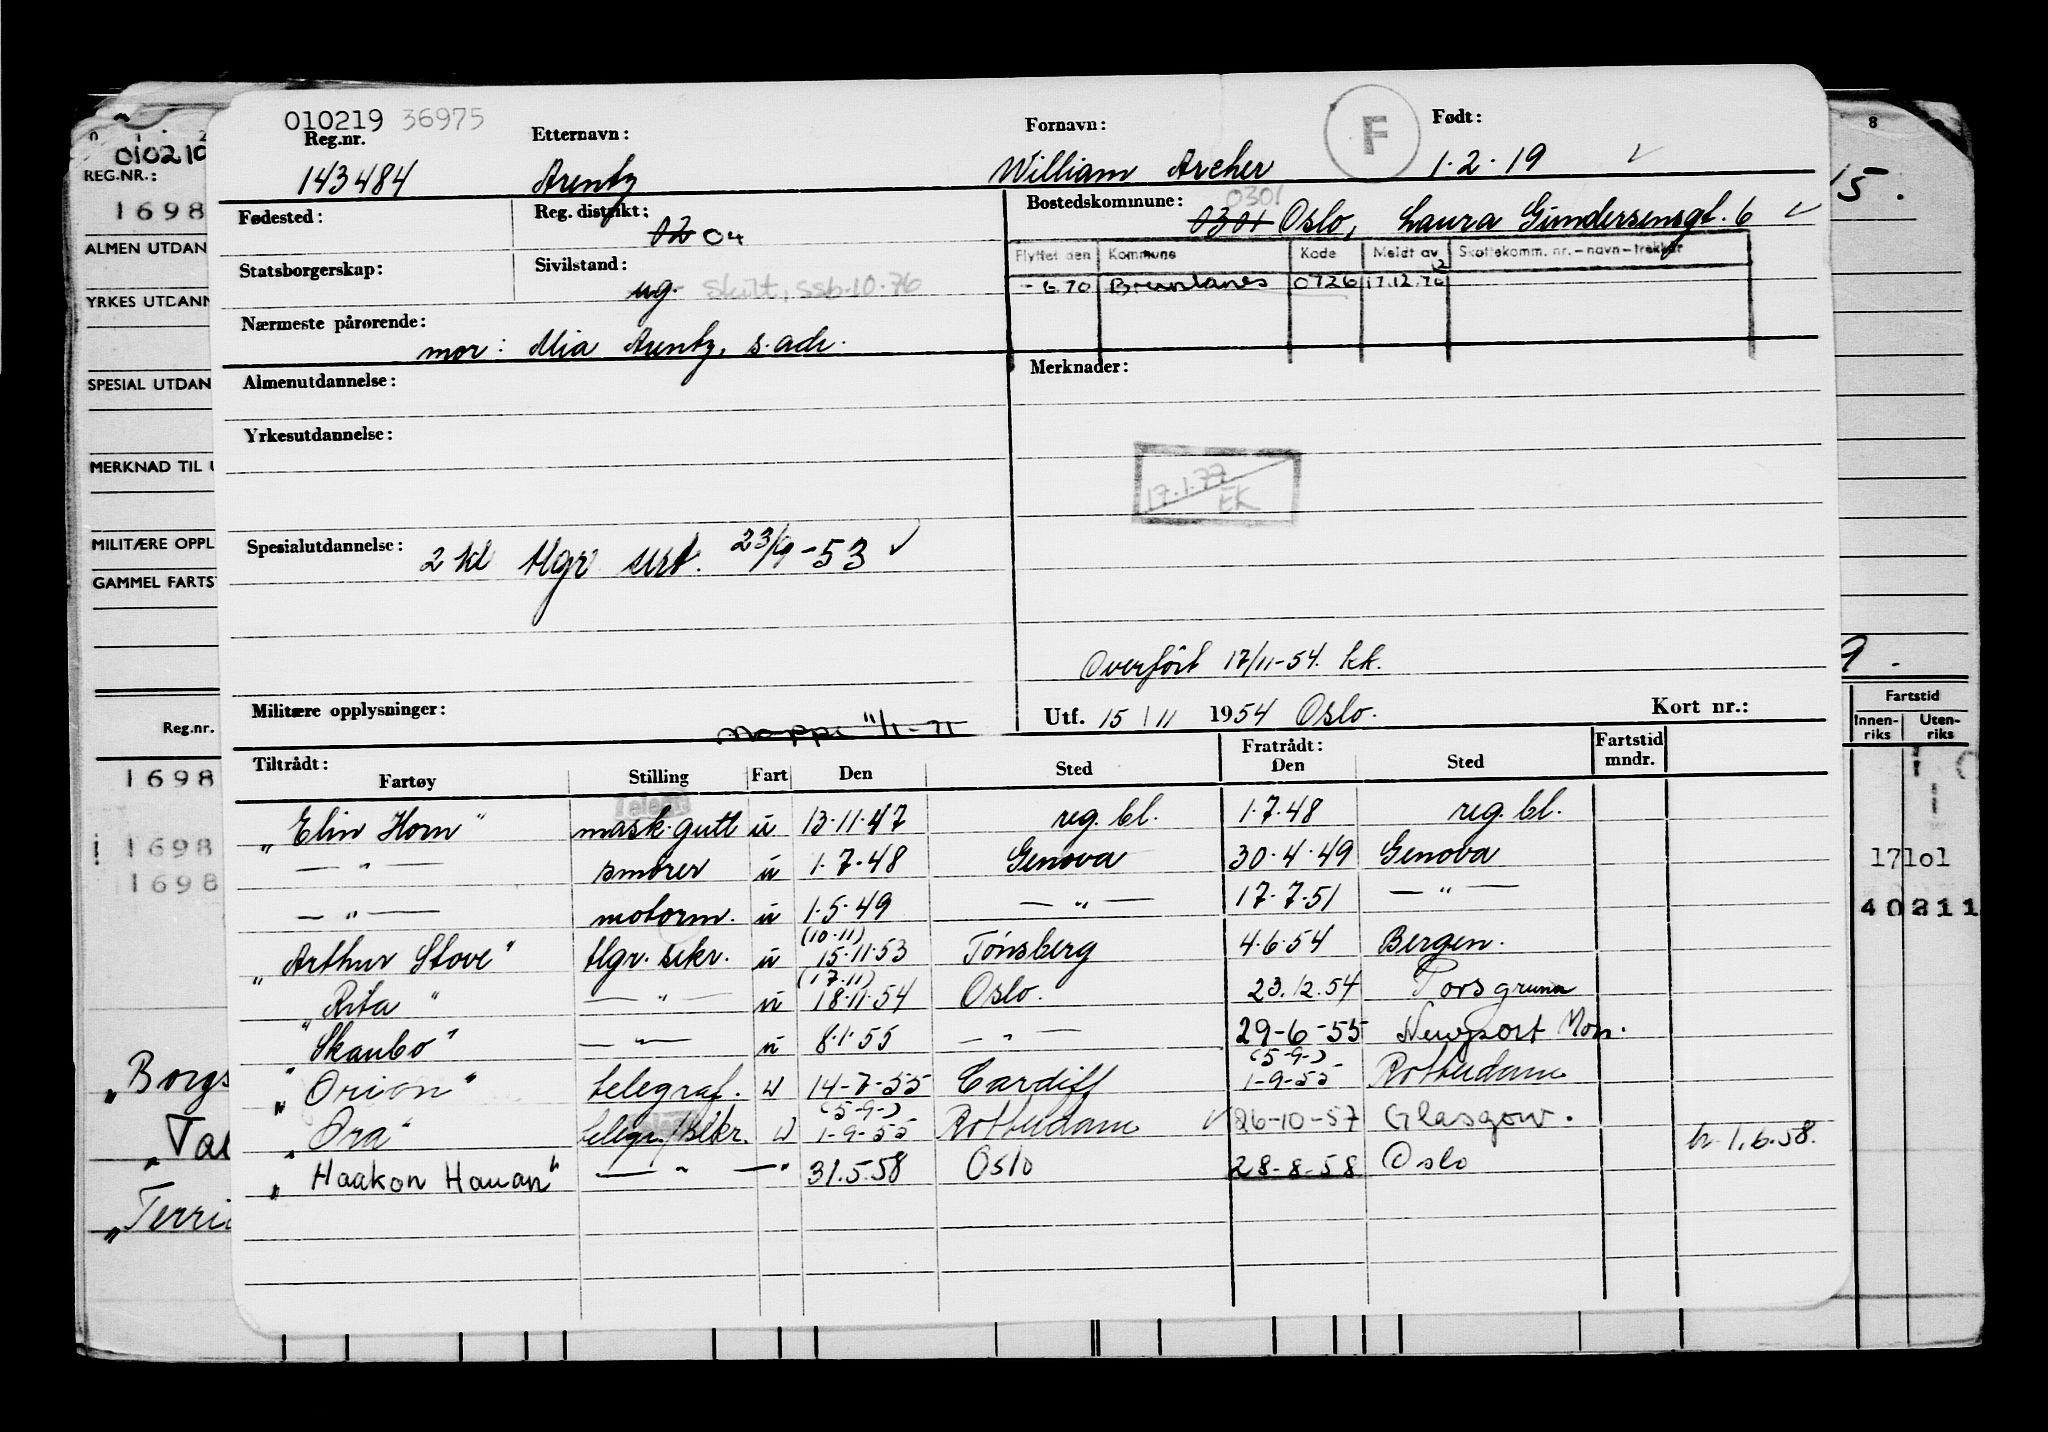 010219 36975
Reg.nr. Etternavn: Fornavn: F Født:
143484 Arentz William Archer 1.2.19
Fødested: Reg. distrikt: 02 04 Bostedskommune: 0301
0301 Oslo, Laura Gundersensgt. 6
Flyttet den Kommune Kode Meldt av Skattekomm. nr. – navn – trekkår
- 6.70 Brunlanes 0726 17.12.76
Statsborgerskap: Sivilstand: ug. skilt, ssb. 10.76
Nærmeste pårørende:
mor: Mia Arentz, s. adr.
Almenutdannelse: Merknader:
Yrkesutdannelse:
17.1.77
EK
Spesialutdannelse: 2 kl tlgr sert. 23/9-53
Overført 17/11-54. kk.
Militære opplysninger: Utf. 15/11 1954 Oslo. Kort nr.:
Mappe 11/1-71
Tiltrådt: Fratrådt: Fartstid
Fartøy Stilling Fart Den Sted Den Sted mndr.
"Elin Horn" mask.gutt u 13.11.47 reg. bl. 1.7.48 reg. bl.
— " — smører u 1.7.48 Genova 30.4.49 Genova
— " — motorm. u 1.5.49 — " — 17.7.51 — " —
(10.11)
"Arthur Stove" tlgr. sekr. u 15.11.53 Tönsberg 4.6.54 Bergen.
(17.11)
"Rita" — " — u 18.11.54 Oslo. 23.12.54 Porsgrunn
"Skaubo" — " — u 8.1.55 — " — 29-6-55 Newport Mon.
(5-9-)
"Orion" telegraf. u 14-7-55 Cardiff 1-9-55 Rotterdam
(5-9-)
"Ora" telegr./sekr. u 1-9-55 Rotterdam 26-10-57 Glasgow.
"Haakon Hauan" — " — " 31.5.58 Oslo 28-8-58 Oslo 1.6.58.
010219
REG.NR.:
1698
ALMEN UTDAN
YRKES UTDANN
SPESIAL UTDAN
MERKNAD TIL U
MILITÆRE OPPL
GAMMEL FARTS
Reg.nr.
1698
1698
1698
"Borgs
"Ta
"Terri
8
15.
9.
Fartstid
Innen-
riks
Uten-
riks
17101
40211